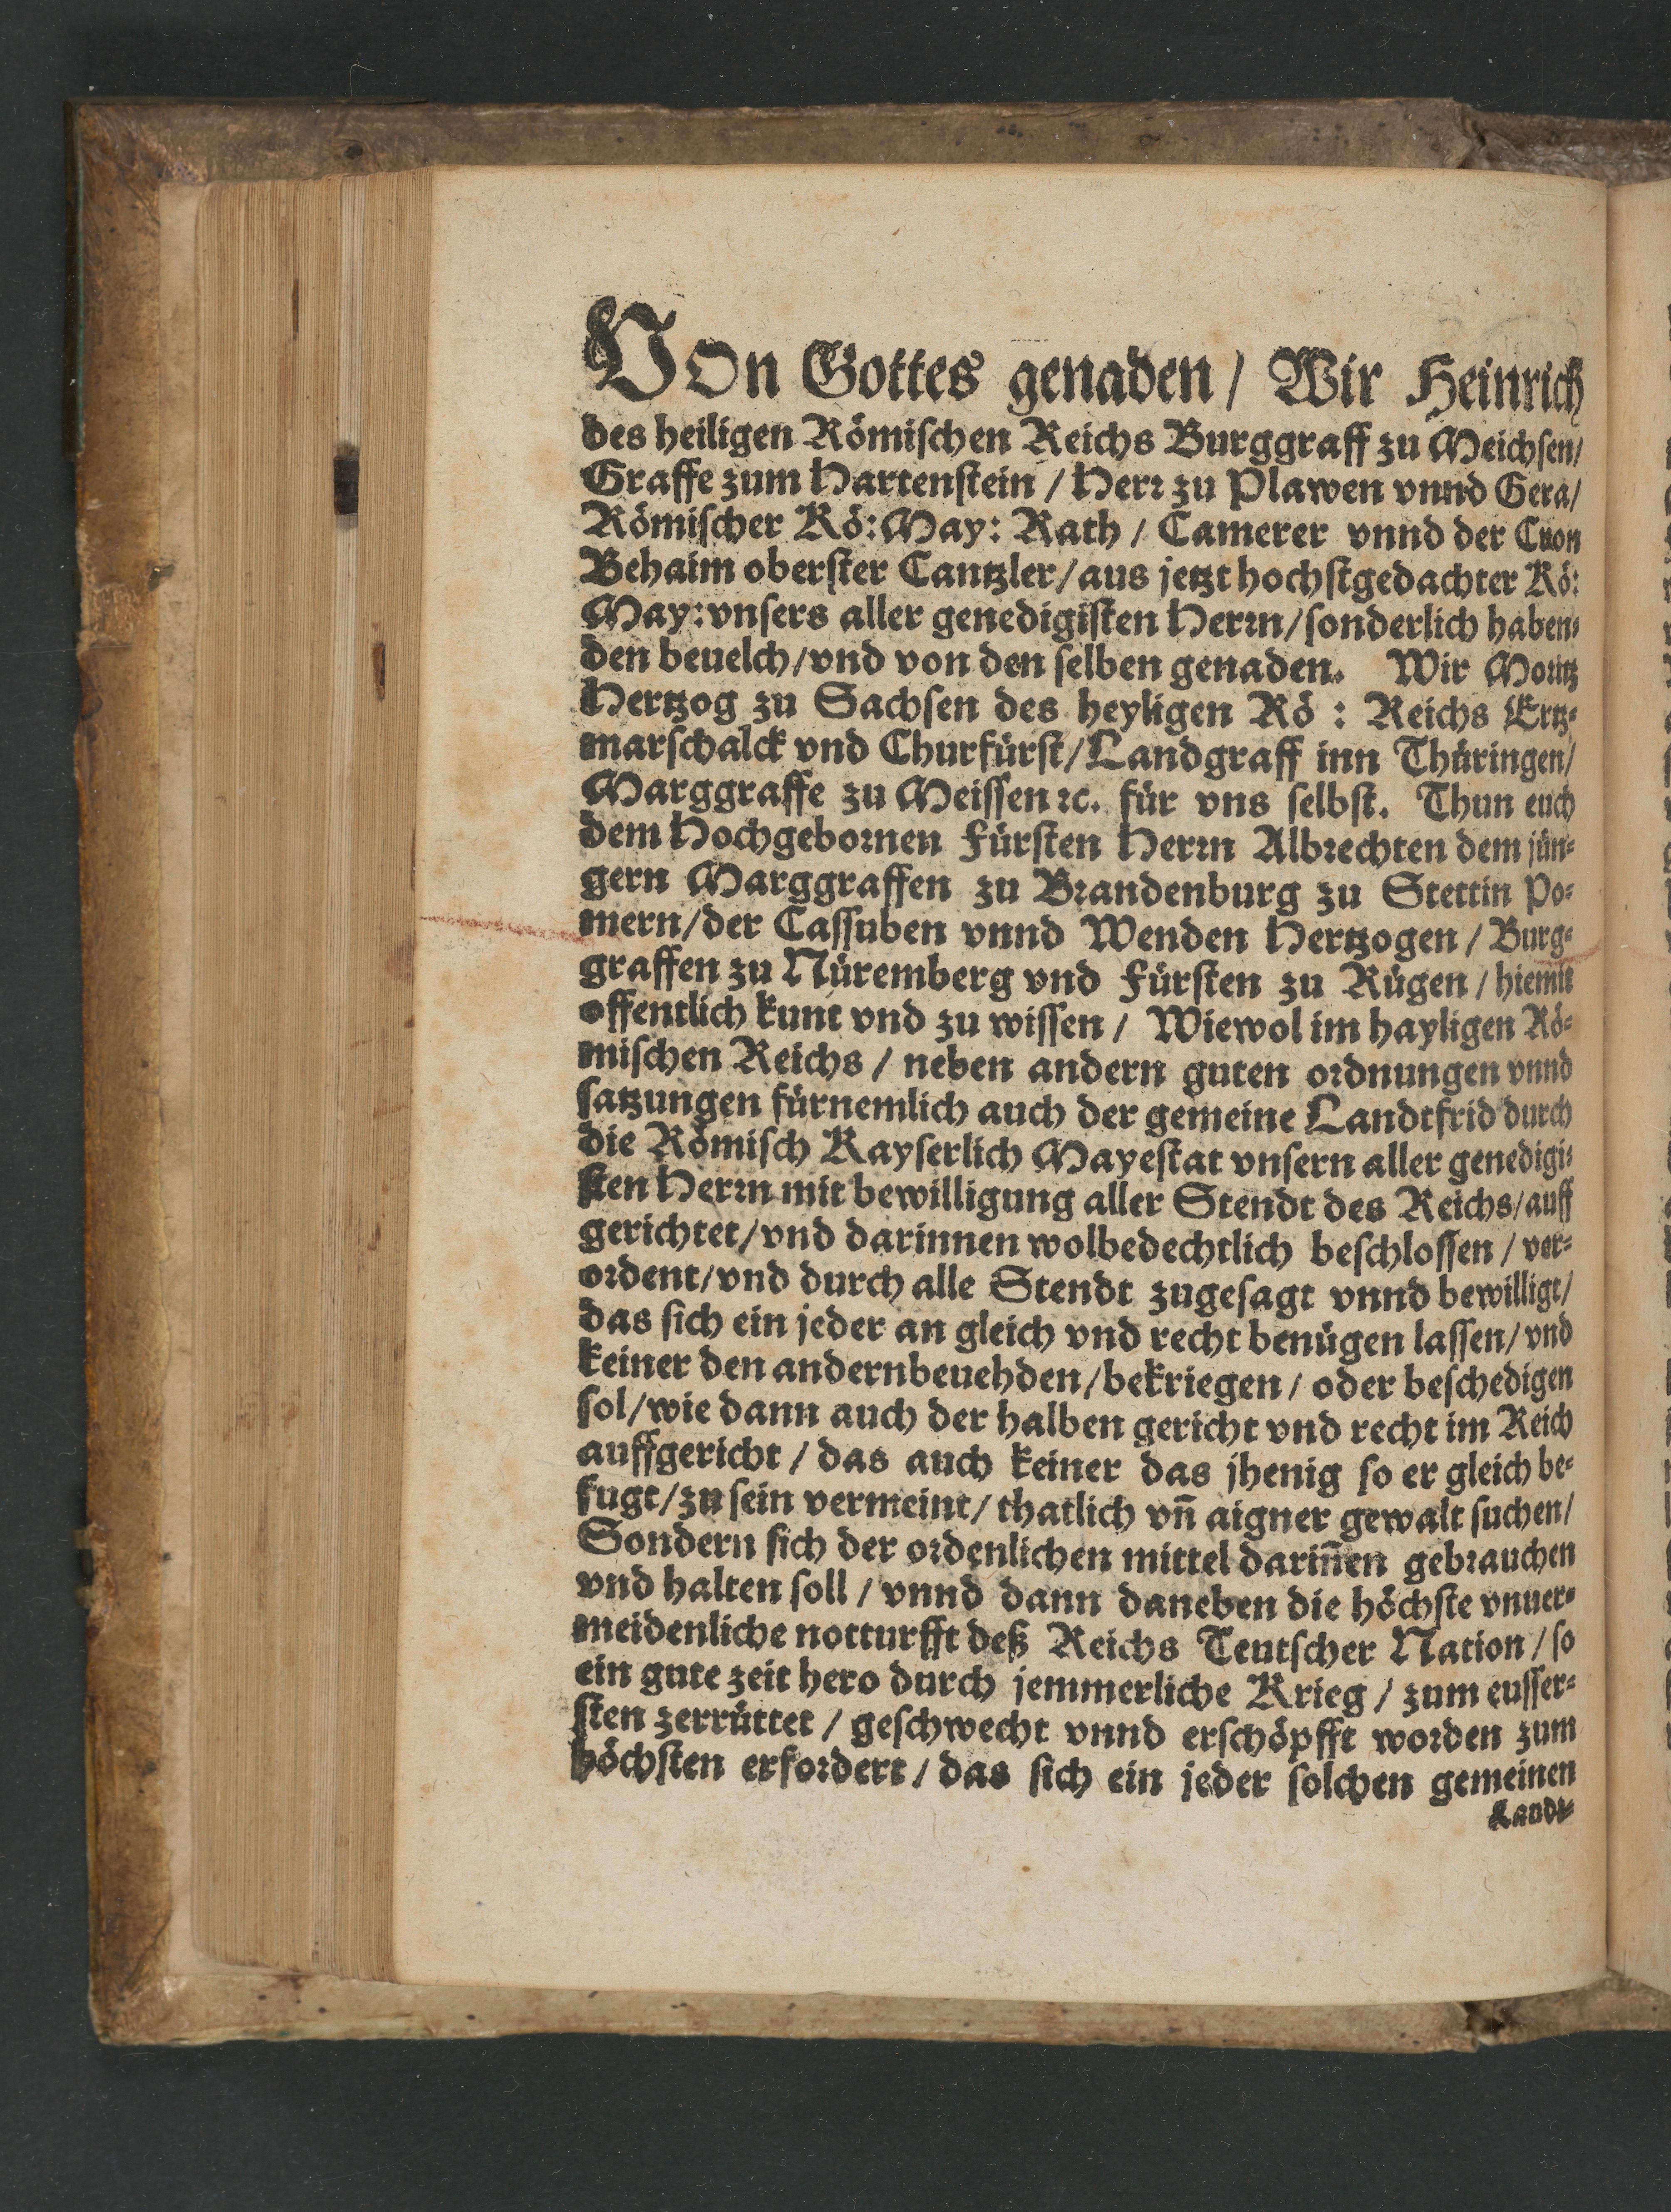 VOn Gottes genaden / Wir Heinrich
des heiligen Römischen Reichs Burggraff zu Meichsen/
Graffe zum Hartenstein / Herr zu Plawen vnnd Gera/
Römischer Kö: May: Rath / Camerer vnnd der Cron
Behaim oberster Cantzler/aus jetzt hochstgedachter Kö:
May: vnsers aller genedigisten Herrn/sonderlich haben⸗
den beuelch/vnd von den selben genaden. Wir Moritz
Hertzog zu Sachsen des heyligen Rö : Reichs Ertz⸗
marschalck vnd Churfürst/Landgraff inn Thüringen/
Marggraffe zu Meissen ꝛc. für vns selbst. Thun euch
dem Hochgebornen Fürsten Herrn Albrechten dem jün⸗
gern Marggraffen zu Brandenburg zu Stettin Po⸗
mern/der Cassuben vnnd Wenden Hertzogen / Burg⸗
graffen zu Nüremberg vnd Fürsten zu Rügen / hiemit
offentlich kunt vnd zu wissen / Wiewol im hayligen Rö⸗
mischen Reichs / neben andern guten ordnungen vnnd
satzungen fürnemlich auch der gemeine Landtfrid durch
die Römisch Kayserlich Mayestat vnsern aller genedigi⸗
sten Herrn mit bewilligung aller Stendt des Reichs/auff
gerichtet/vnd darinnen wolbedechtlich beschlossen / ver⸗
ordent/vnd durch alle Stendt zugesagt vnnd bewilligt/
das sich ein jeder an gleich vnd recht benügen lassen/vnd
keiner den andernbeuehden/bekriegen / oder beschedigen
sol/wie dann auch der halben gericht vnd recht im Reich
auffgericht / das auch keiner das jhenig so er gleich be⸗
fugt/zu sein vermeint/ thatlich vn̄ aigner gewalt suchen/
Sondern sich der ordenlichen mittel darin̄en gebrauchen
vnd halten soll / vnnd dann daneben die höchste vnuer⸗
meidenliche notturfft deß Reichs Teutscher Nation / so
ein gute zeit hero durch jemmerliche Krieg / zum eusser⸗
sten zerrüttet / geschwecht vnnd erschöpfft worden zum
höchsten erfordert / das sich ein jeder solchen gemeinen
Landt⸗